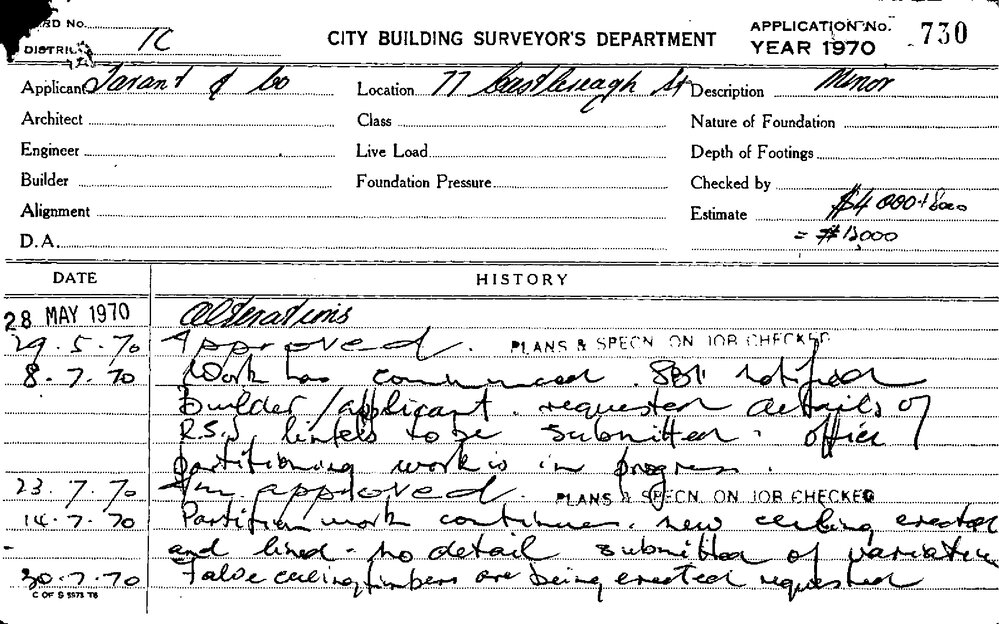 RD No.
DISTRICT 1C
CITY BUILDING SURVEYOR'S DEPARTMENT
APPLICATION No. 730
YEAR 1970
Applicant Tarant & Co Location 77 Castlereagh St Description Minor
Architect Class Nature of Foundation
Engineer Live Load Depth of Footings
Builder Foundation Pressure Checked by
Alignment Estimate $4 000+8000
D.A. = $12,000
DATE HISTORY
28 MAY 1970 Alterations
29.5.70 Approved. PLANS & SPECN. ON JOB CHECKED
8.7.70 Work has commenced. SBI notified
Builder/applicant. requested details of
R.S.J lintels to be submitted. office
partitioning work is in progress.
23.7.70 approved. PLANS & SPECN. ON JOB CHECKED
14.7.70 Partition work continues. new ceiling erected
and lined - no detail submitted of variation
30.7.70 False ceiling timbers are being erected requested
C OF S 5573 T8